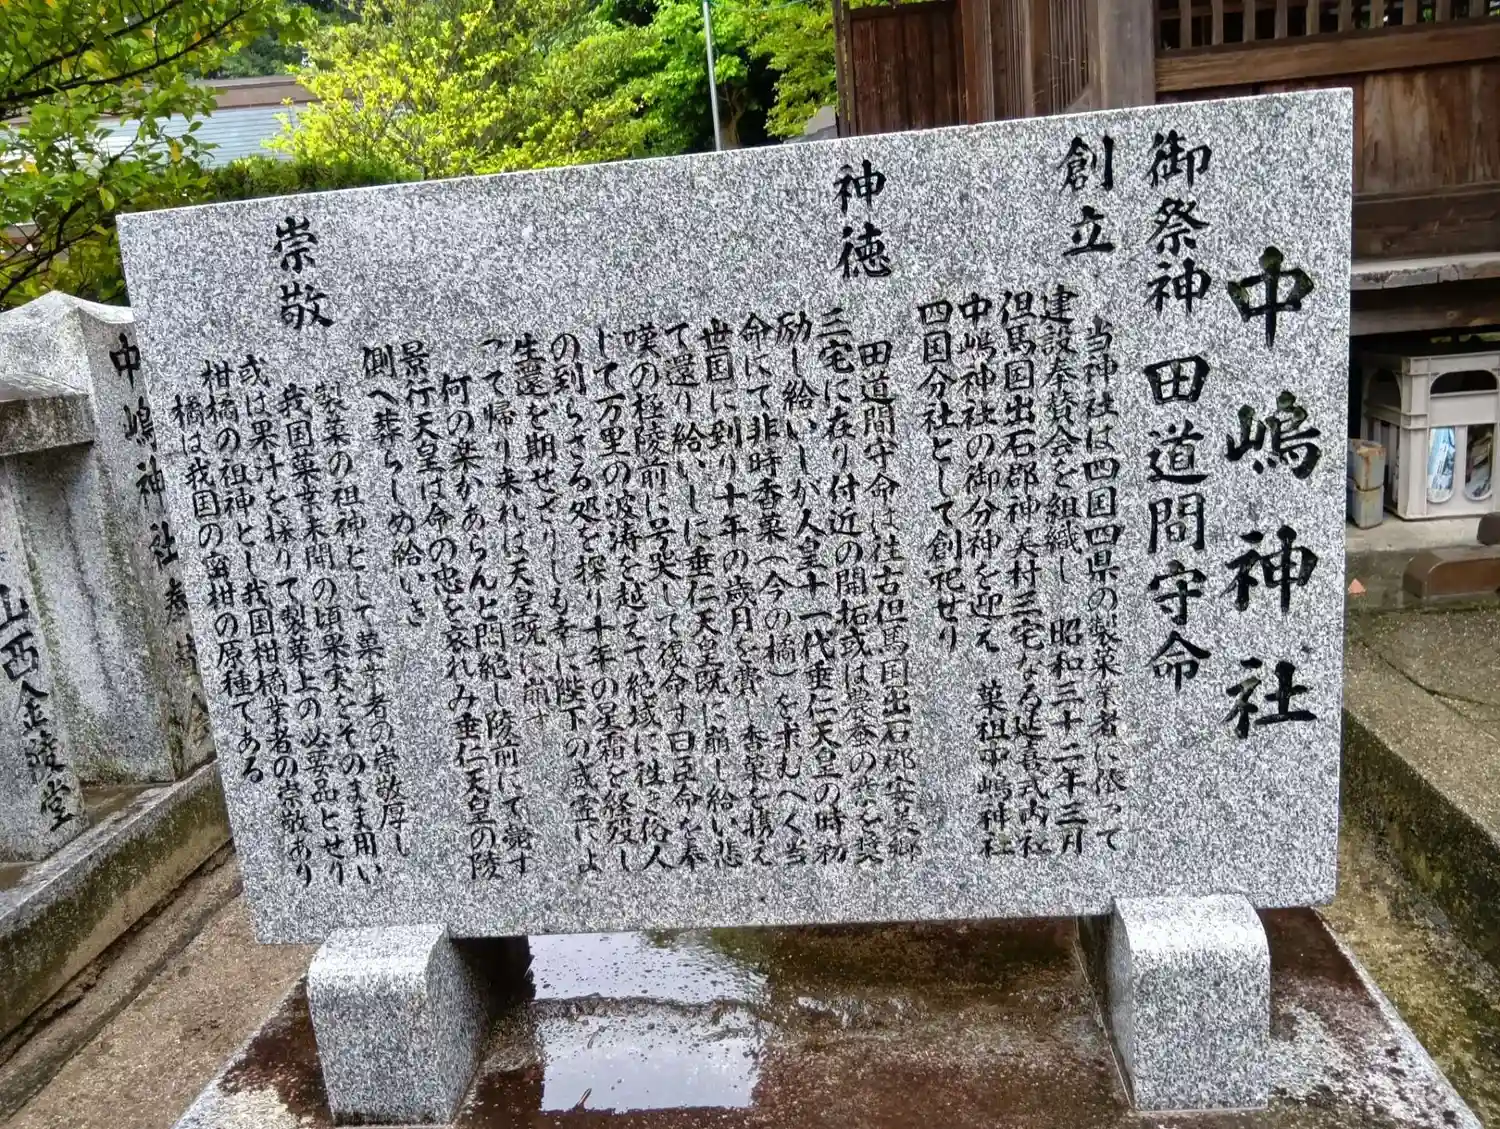 中嶋神社
御祭神 田道間守命
創立
当神社は四国四県の製菓業者に依って
建設奉賛会を組織し 昭和三十二年三月
但馬国出石郡神美村三宅なる延喜式内社
中嶋神社の御分神を迎え 菓祖中嶋神社
四国分社として創祀せり
神徳
田道間守命は往古但馬国出石郡安美郷
三宅に在り付近の開拓或は農蚕の業を奨
励し給いしが人皇十一代垂仁天皇の時勅
命にて非時香菓(今の橘)を求むべく当
世国に到り十年の歳月を費し 香菓を携え
て還り給いしに垂仁天皇既に崩し給い悲
嘆の極陵前に号哭して復命す曰臣命を奉
じて万里の波涛を越えて絶域に往き俗人
の到らさる処を探り十年の星霜を経段し
生還を期せざりしも幸に陛下の或霊によ
って帰り来れは天皇既に崩す
何の楽かあらんと悶絶し陵前にて薨す
景行天皇は命の忠を哀れみ垂仁天皇の陵
側へ葬らしめ給いき
崇敬
製菓の祖神として菓業者の崇敬厚し
我国菓業未開の頃果実をそのまま用い
或は果汁を採りて製菓上の必要品とせり
柑橘の祖神とし我国柑橘業者の崇敬あり
橘は我国の蜜柑の原種である
中嶋神社奉賛
山西金陵堂